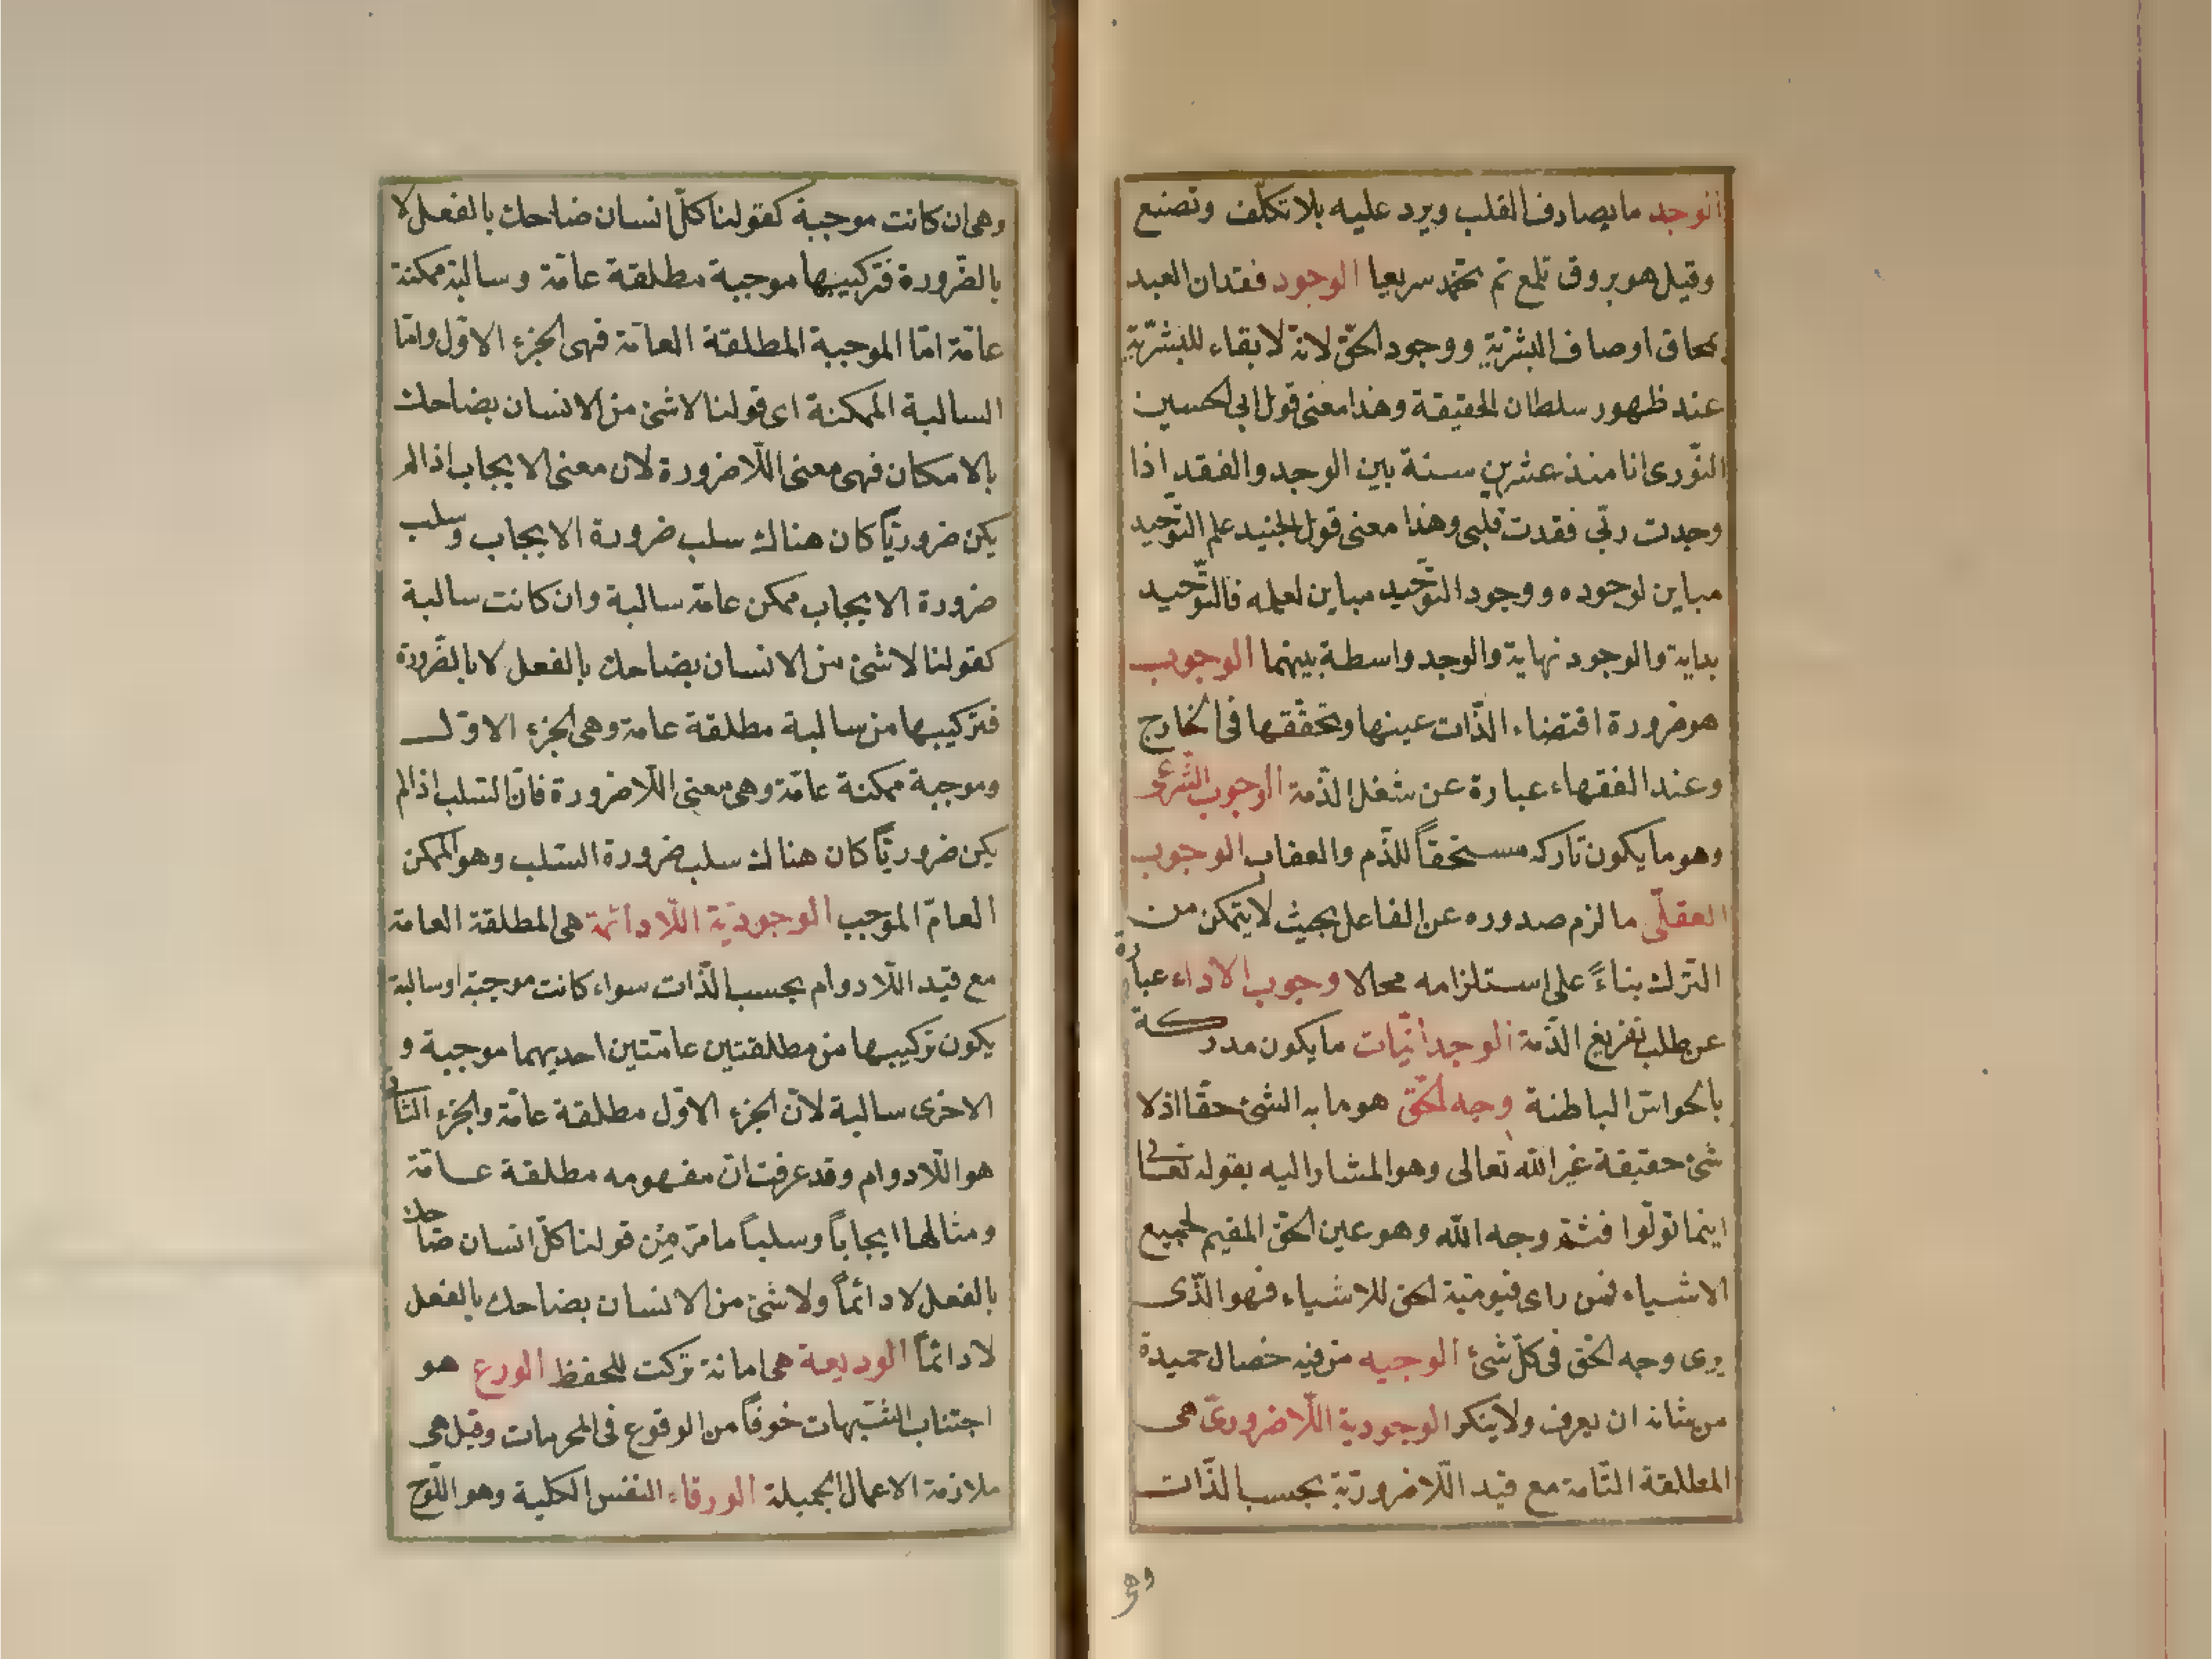 الوجد ما يصادف القلب ويرد عليه بلا تكلّف وتصنع
وقيل هو بروق تلمع ثم تخمد سريعا الوجود فقدان العبد
بمحاق اوصاف البشريّة ووجود الحقّ لانه لا بقاء للبشريّة
عند ظهور سلطان الحقيقة وهذا معنى قول ابى الحسين
النّورى انا منذ عشرين سنة بين الوجد والفقد اذا
وجدت ربّى فقدت قلبى وهذا معنى قول الجنيد علم التّوحيد
مباين لوجوده ووجود التّوحيد مباين لعلمه فالتّوحيد
بداية والوجود نهاية والوجد واسطة بينهما الوجوب
هو ضرورة اقتضاء الذّات عينها وتحقّقها فى الخارج
وعند الفقهاء عبارة عن شغل الذّمة الوجوب الشّرعى
وهو ما يكون تاركه مستحقاً للذّم والعقاب الوجوب
العقلّى ما لزم صدوره عن الفاعل بحيث لا يتمكن من
التّرك بناءً على استلزامه محالا وجوب الاداء عبارة
عن طلب تفريغ الذّمة الوجدانيّات ما يكون مدركة
بالحواسّ الباطنة وجه الحقّ هو ما به الشئ حقّا اذ لا
شئ حقيقة غير الله تعالى وهو المشار اليه بقوله تعالى
اينما تولّوا فثمّ وجه الله وهو عين الحقّ المقيم لجميع
الاشياء فمن راى قيوميّة الحق للاشياء فهو الذّى
يرى وجه الحقّ فى كلّ شئ الوجيه من فيه خصال حميدة
من شانه ان يعرف ولا ينكر الوجودية اللّا ضرورىّة هى
المطلقة العّامة مع قيد اللّا ضروريّة بحسب الذّات
وهى
وهى ان كانت موجبة كقولنا كلّ انسان ضاحك بالفعل لا
بالضّرورة فتركيبها موجبة مطلقة عامّة وسالبة ممكنة
عامّة امّا الموجبة المطلقة العامّة فهى الجزء الاوّل وامّا
السالبة الممكنة اى قولنا لا شئ من الانسان بضاحك
بالامكان فهى معنى اللّا ضرورة لان معنى الايجاب اذا لم
يكن ضروريّاً كان هناك سلب ضرورة الايجاب وسلب
ضرورة الايجاب ممكن عامّ سالبة وان كانت سالبة
كقولنا لا شئ من الانسان بضاحك بالفعل لا بالضّرورة
فتركيبها من سالبة مطلقة عامة وهى الجزء الاوّل
وموجبة ممكنة عامّة وهى معنى اللّا ضرورة فانّ السّلب اذا لم
يكن ضروريّاً كان هناك سلب ضرورة السّلب وهو الممكن
العامّ الموجب الوجوديّة اللّا دائمة هى المطلقة العامة
مع قيد اللّا دوام بحسب الذّات سواء كانت موجبة او سالبة
يكون تركيبها من مطلقتين عامّتين احديهما موجبة و
الاخرى سالبة لانّ الجزء الاوّل مطلقة عامّة والجزء الثّانى
هو اللّا دوام وقد عرفت انّ مفهومه مطلقة عامّة
ومثالها ايجاباً وسلباً ما مرّ مِن قولنا كلّ انسان ضاحك
بالفعل لا دائماً ولا شئ من الانسان بضاحك بالفعل
لا دائماً الوديعة هى امانة تركت للحفظ الورع هو
اجتناب الشّبهات خوفاً من الوقوع فى المحرمات وقيل هى
ملازمة الاعمال الجميلة الورقاء النفس الكلية وهو اللّوح